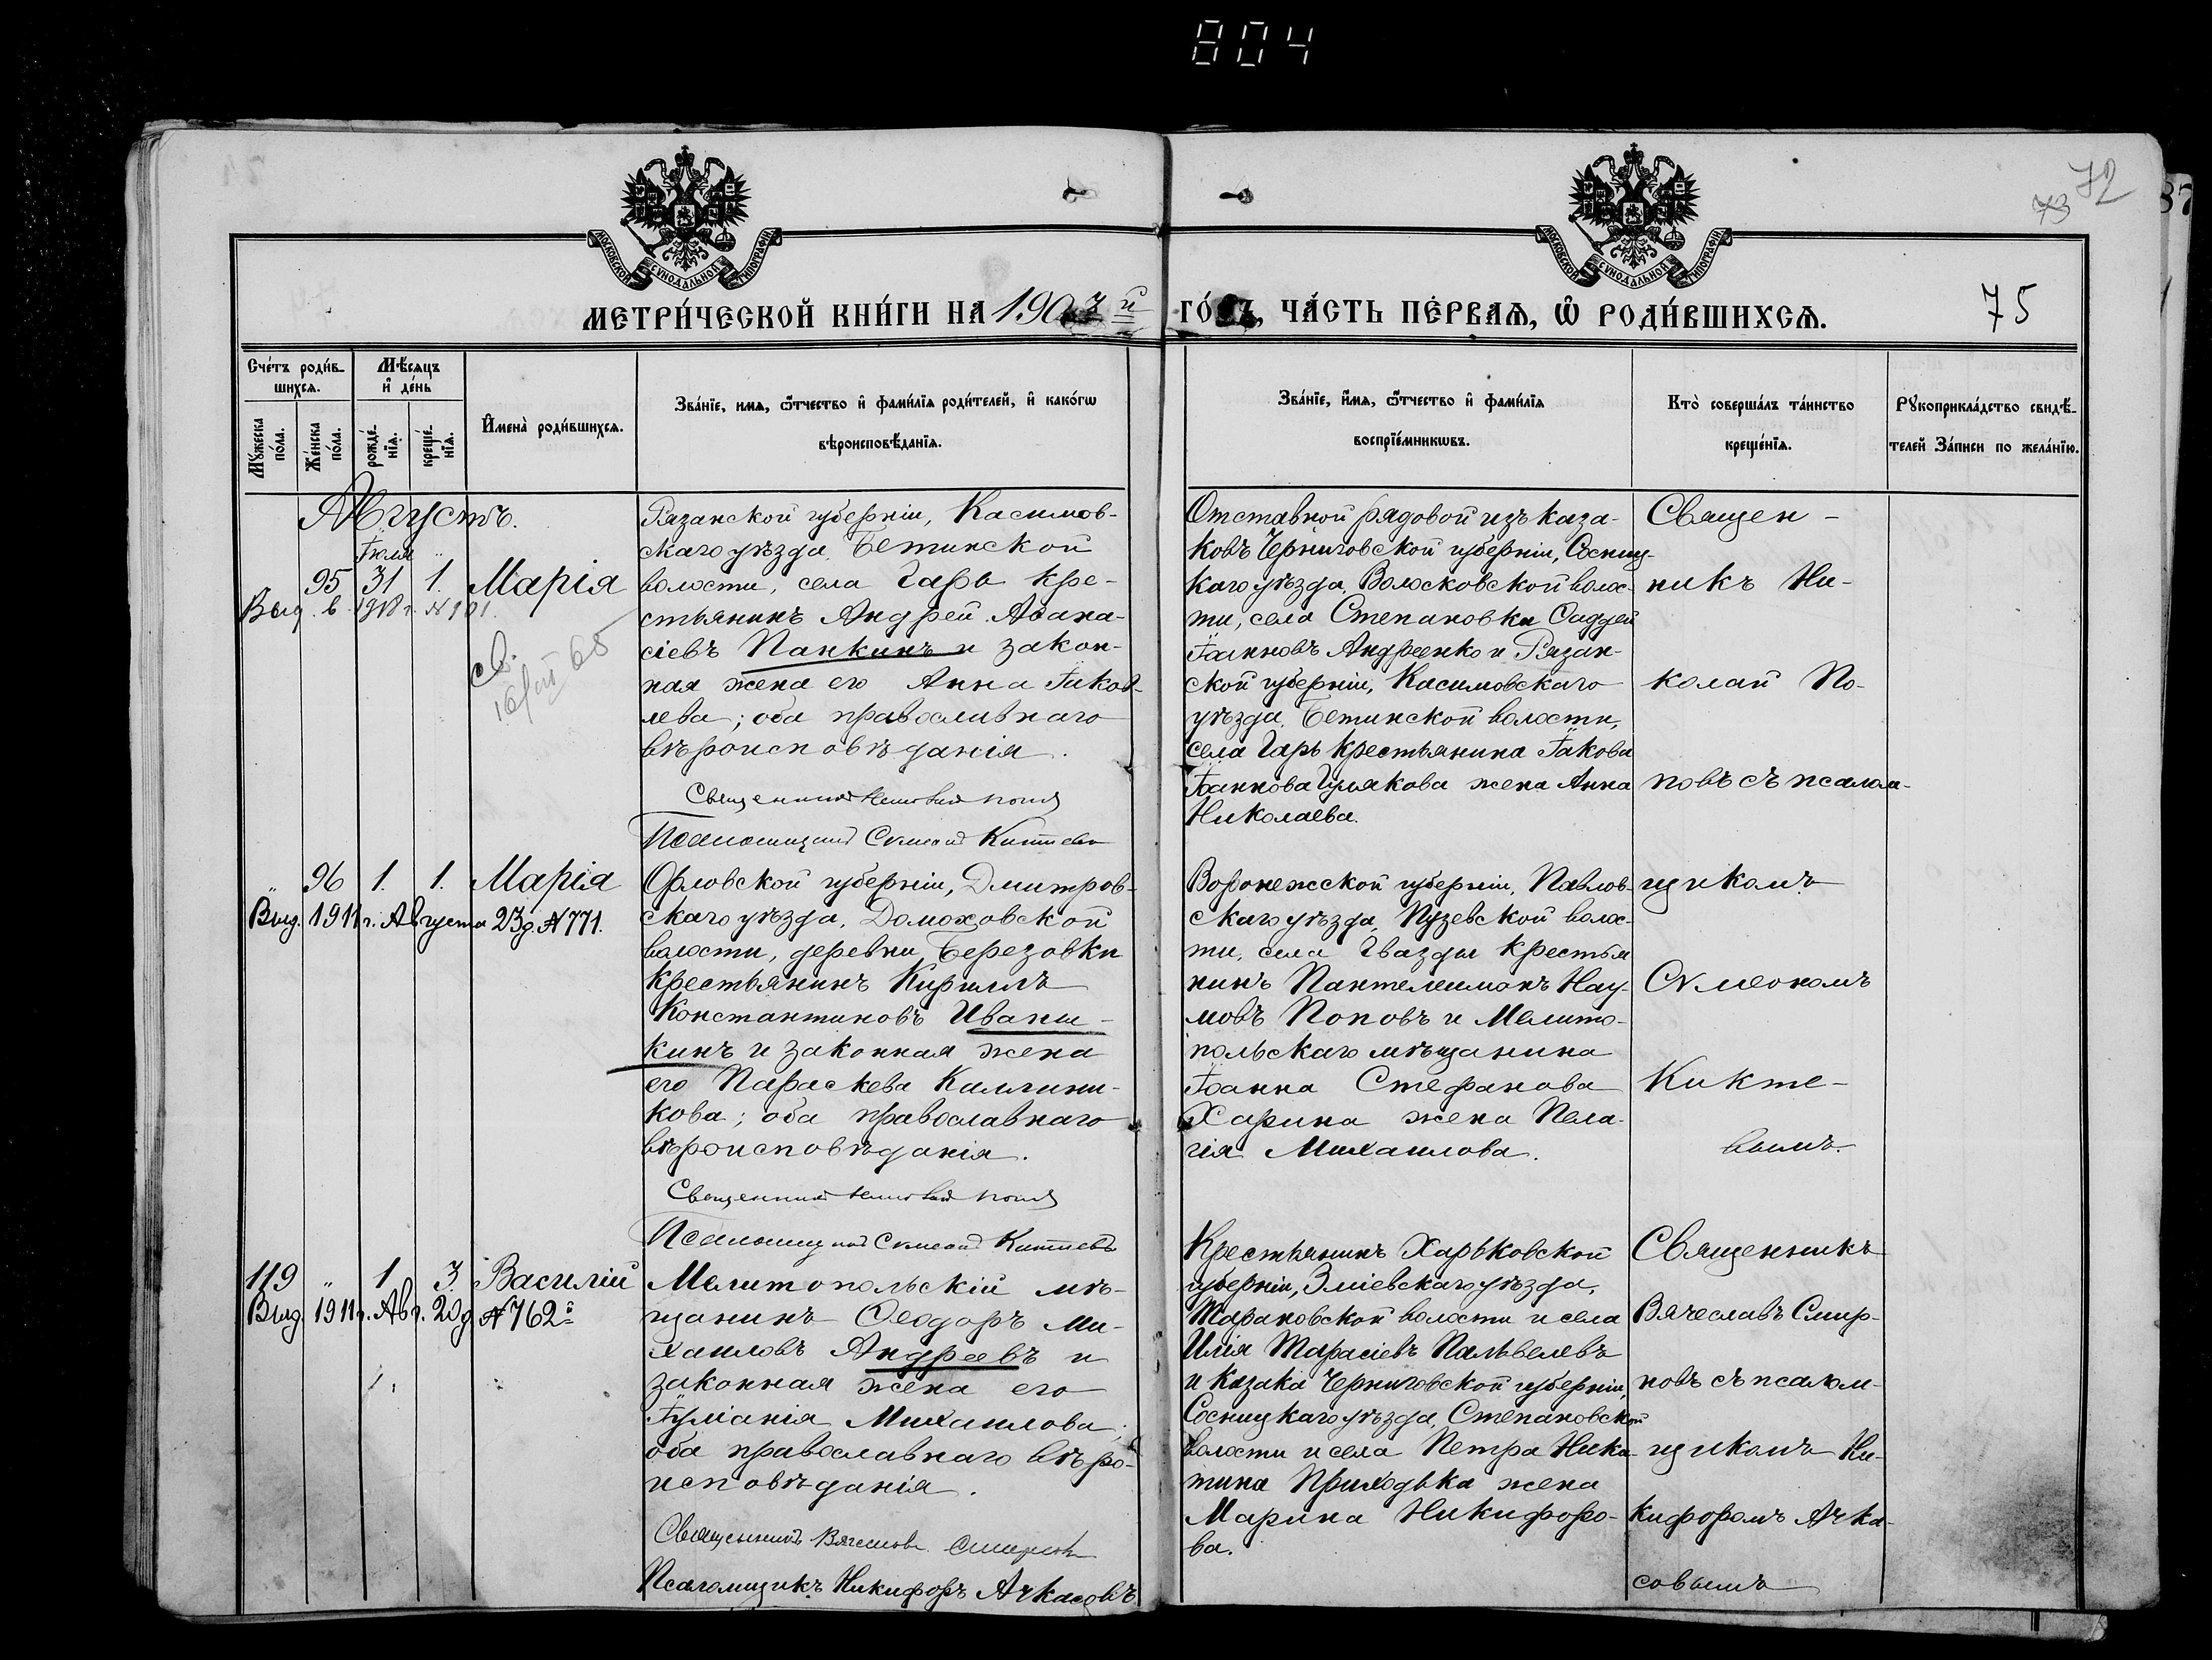 804
72
73
87
МОСКОВСКОЙ СѴНОДАЛЬНОЙ ТИПОГРАФІИ
МОСКОВСКОЙ СѴНОДАЛЬНОЙ ТИПОГРАФІИ
МЕТРИ́ЧЕСКОЙ КНИ́ГИ НА 1903й ГО́ДЪ, ЧА́СТЬ ПЕ́РВАѦ, Ѿ РОДИ́ВШИХСѦ.
75
Сче́тъ роди́в-
шихсѧ.
Мѣ́сѧцъ
и҆ де́нь
Мꙋ́жеска по́ла.
Же́нска по́ла.
рожде́-
нїѧ.
креще́-
нїѧ.
И҆мена̀ роди́вшихсѧ.
Зва́нїе, имѧ, ѻ҆́тчество и҆ фами́лїѧ роди́телей, и҆ како́гѡ
вѣроисповѣ́данїѧ.
Зва́нїе, и҆́мѧ, ѻ҆́тчество и҆ фами́лїѧ
воспрїе́мникѡвъ.
Кто̀ соверша́лъ та́инство
креще́нїѧ.
Рꙋкоприкла́дство свидѣ́-
телей За́писи по жела́нїю.
Августъ.
Іюля
95 31 1. Марія
Выд. в 1918 г. № 101.
св.
Рязанской губерніи, Касимов-
скаго уѣзда, Бетинской
волости, села Гарь кре-
стьянинъ Андрей Аѳана-
сіевъ Панкинъ и закон-
ная жена его Анна Іаков-
лева; оба православнаго
вѣроисповѣданія.
Священникъ Николай Поповъ
Псаломщикъ Сѵмеонъ Киктевъ
Отставной рядовой изъ каза-
ковъ Черниговской губерніи, Сосниц-
каго уѣзда, Волосковской волос-
ти, села Степановки Ѳаддей
Іоанновъ Андреенко и Рязан-
ской губерніи, Касимовскаго
уѣзда, Бетинской волости,
села Гарь крестьянина Іакова
Іоаннова Гулякова жена Анна
Николаева.
Священ-
никъ Ни-
колай По-
повъ съ псалом-
щикомъ
Сѵмеономъ
Кикте-
вымъ.
" 96 1. 1. Марія
Выд. 1911 г. Августа 23 д. № 771.
Орловской губерніи, Дмитров-
скаго уѣзда, Домоховской
волости, деревни Березовки
крестьянинъ Кириллъ
Константиновъ Иваш-
кинъ и законная жена
его Параскева Каллини-
кова; оба православнаго
вѣроисповѣданія.
Священникъ Николай Поповъ
Псаломщикъ Сѵмеонъ Киктевъ
Воронежской губерніи, Павлов-
скаго уѣзда, Пузевской волос-
ти, села Гвазды крестья
нинъ Пантелеимонъ Нау-
мовъ Поповъ и Мелито-
польскаго мѣщанина
Іоанна Стефанова
Харина жена Пела-
гія Михаилова.
119 " 1 3. Василій
Выд. 1911 г. Авг. 20 д. № 762.
Мелитопольскій мѣ-
щанинъ Ѳеодоръ Ми-
хаиловъ Андреевъ и
законная жена его
Іуліанія Михаилова;
оба православнаго вѣро-
исповѣданія.
Священникъ Вячеславъ Смирновъ
Псаломщикъ Никифоръ Ачкасовъ
Крестьянинъ Харьковской
губерніи, Зміевскаго уѣзда,
Тарановской волости и села
Илія Тарасіевъ Пальвелевъ
и казака Черниговской губерніи,
Сосницкаго уѣзда, Степановской
волости и села Петра Ники-
тина Приходька жена
Марина Никифоро-
ва.
Священникъ
Вячеславъ Смир-
новъ съ псалом-
щикомъ Ни-
кифоромъ Ачка-
совымъ